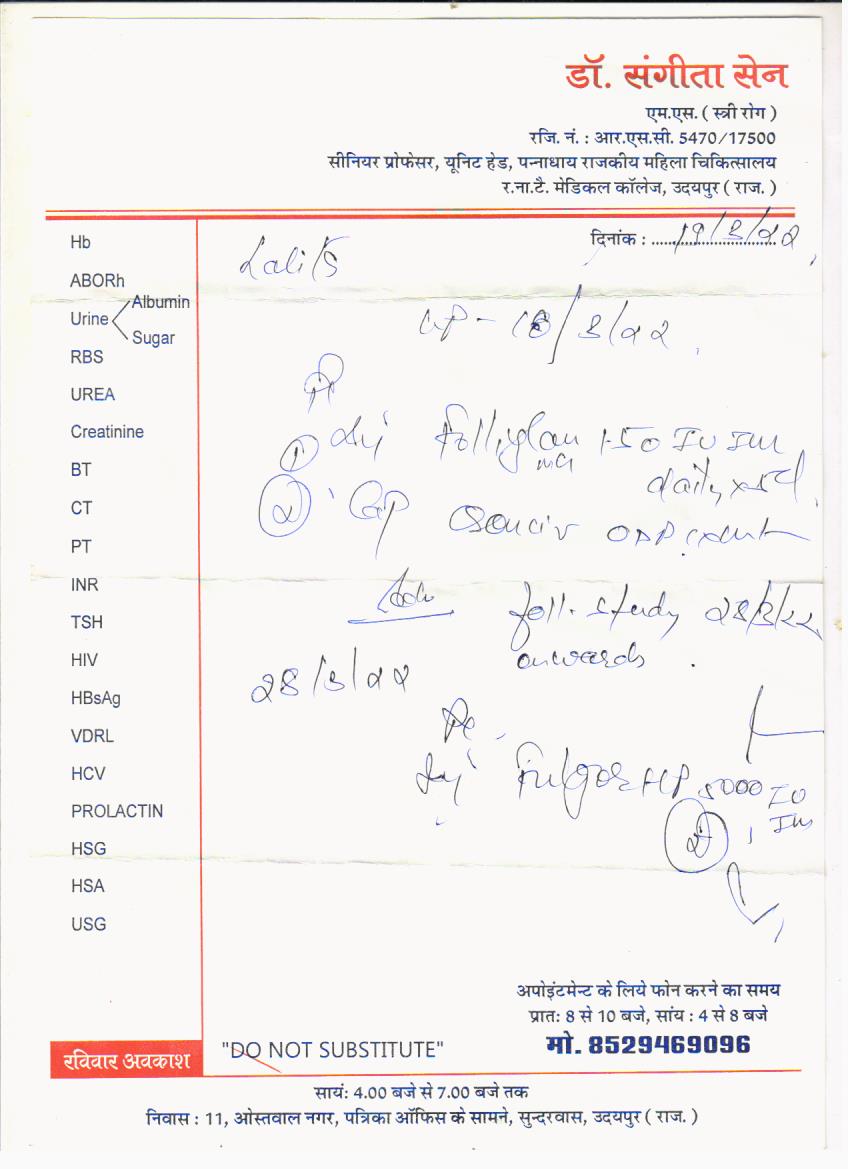 डॉ. संगीता सेन
एम.एस. ( स्त्री रोग )
रजि. नं. : आर.एस.सी. 5470/17500
सीनियर प्रोफेसर, यूनिट हेड, पन्नाधाय राजकीय महिला चिकित्सालय
र.ना.टै. मेडिकल कॉलेज, उदयपुर ( राज. )
दिनांक : 19/3/22
Hb
ABORh
Urine
Albumin
Sugar
RBS
UREA
Creatinine
BT
CT
PT
INR
TSH
HIV
HBsAg
VDRL
HCV
PROLACTIN
HSG
HSA
USG
18/3/22
① Inj 150 IU IM
daily
②
foll. study 28/3/22
onwards
28/3/22
Inj HP 5000 IU
IM
अपोइंटमेन्ट के लिये फोन करने का समय
प्रात: 8 से 10 बजे, सांय : 4 से 8 बजे
मो. 8529469096
रविवार अवकाश
"DO NOT SUBSTITUTE"
सायं: 4.00 बजे से 7.00 बजे तक
निवास : 11, ओस्तवाल नगर, पत्रिका ऑफिस के सामने, सुन्दरवास, उदयपुर ( राज. )